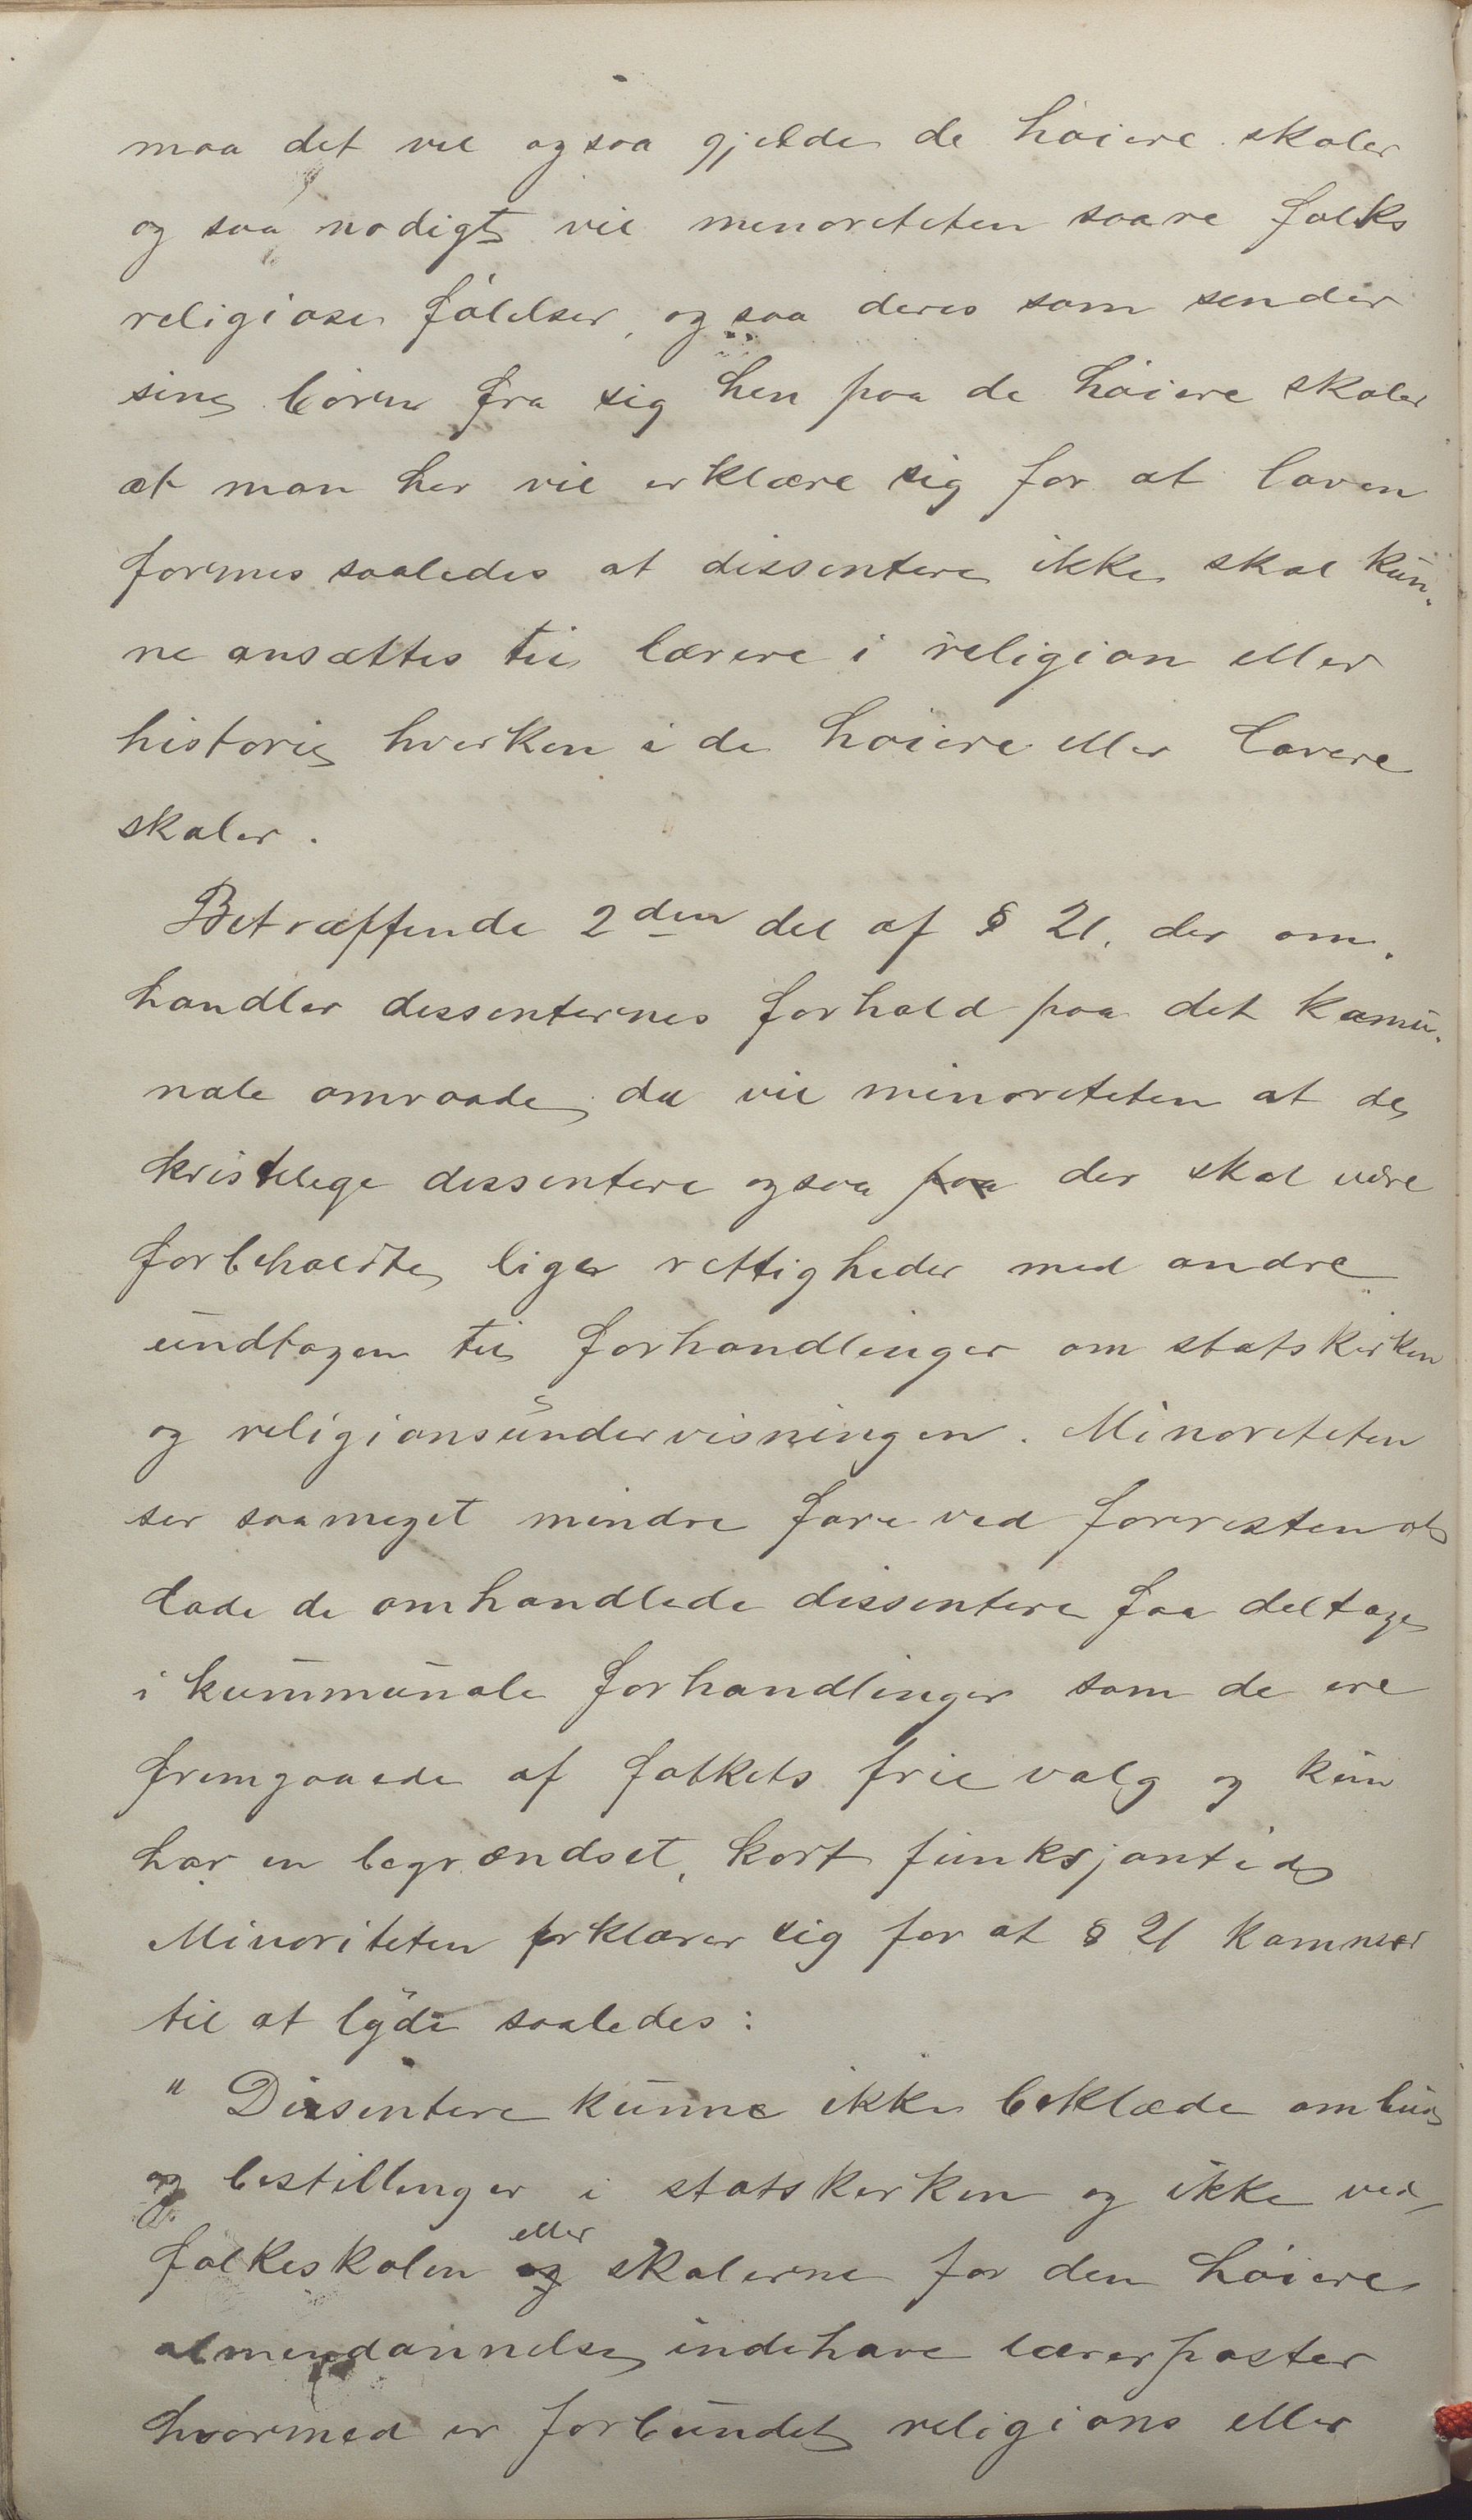 maa det vel ogsaa gjelde de høiere skoler
og saa nødigt vil menoriteten saare folks
religiøse følelser, ogsaa deres som sender
sine børn fra sig hen paa de høiere skoler
at man her vil erklære sig for at loven
formes saaledes at dissentere ikke skal kun-
ne ansættes til lærere i religion eller
historie hverken i de høiere eller lavere
skoler.
Betræffende 2den del af § 21. der om-
handler dessenternes forhold paa det komu-
nale omraade, da vil minoriteten at de
kristelige dessentere ogsaa paa der skal være
forbeholdte lige rettigheder med andre
undtagen til forhandlinger om statskirken
og religionsundervisningen. Minoriteten
ser saameget mindre fare ved forresten at
lade de omhandlede dissentere faa deltage
i kummunale forhandlinger som de ere
fremgaaede af folkets frie valg og kun
har en begrændset, kort funksjontid
Minoriteten erklærer sig for at § 21 kommer
til at lyde saaledes:
" Dissentere kunne ikke beklæde ombud
og bestillinger i statskirken og ikke ved
folkeskolen og eller skolerne for den høiere
almendannelse indehave lærerposter
hvormed er forbundet religions eller